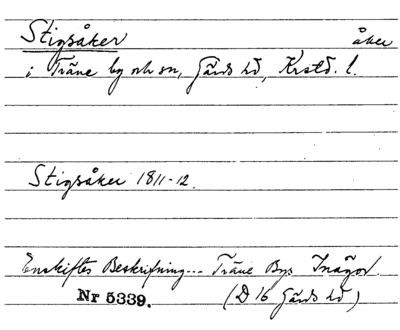 Stigsåker åker
i Träne by och sn, Gärds hd, Krstd. l.
Stigsåker 1811-12.
Enskiftes Beskrifning... Träne Bys Inägor.
Nr 5339. (D 16 Gärds hd)